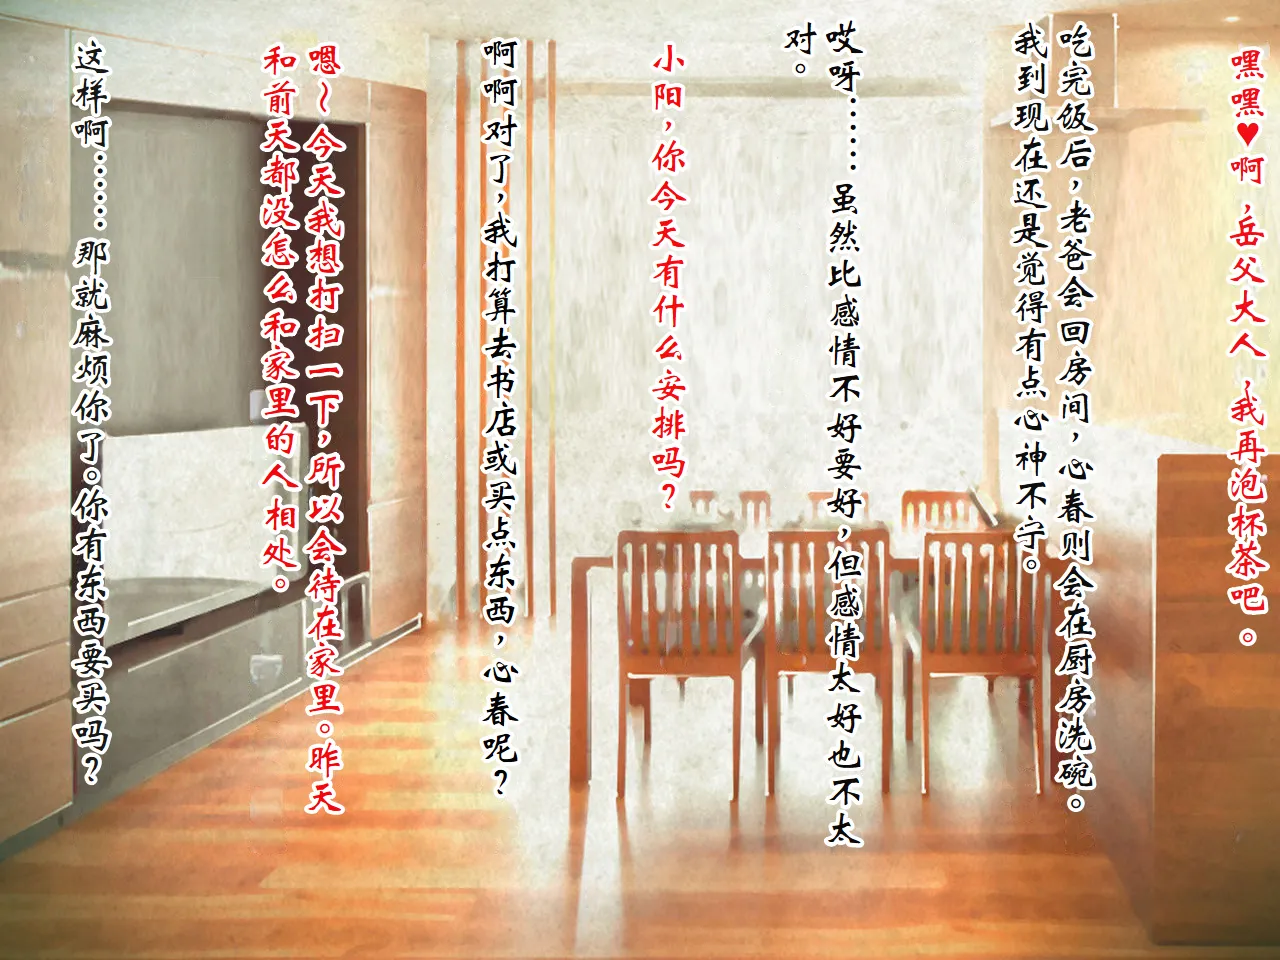 嘿嘿♥啊，岳父大人，我再泡杯茶吧。
吃完饭后，老爸会回房间，心春则会在厨房洗碗。
我到现在还是觉得有点心神不宁。
哎呀……虽然比感情不好要好，但感情太好也不太
对。
小阳，你今天有什么安排吗？
啊啊对了，我打算去书店或买点东西，心春呢？
嗯～今天我想打扫一下，所以会待在家里。昨天
和前天都没怎么和家里的人相处。
这样啊……那就麻烦你了。你有东西要买吗？